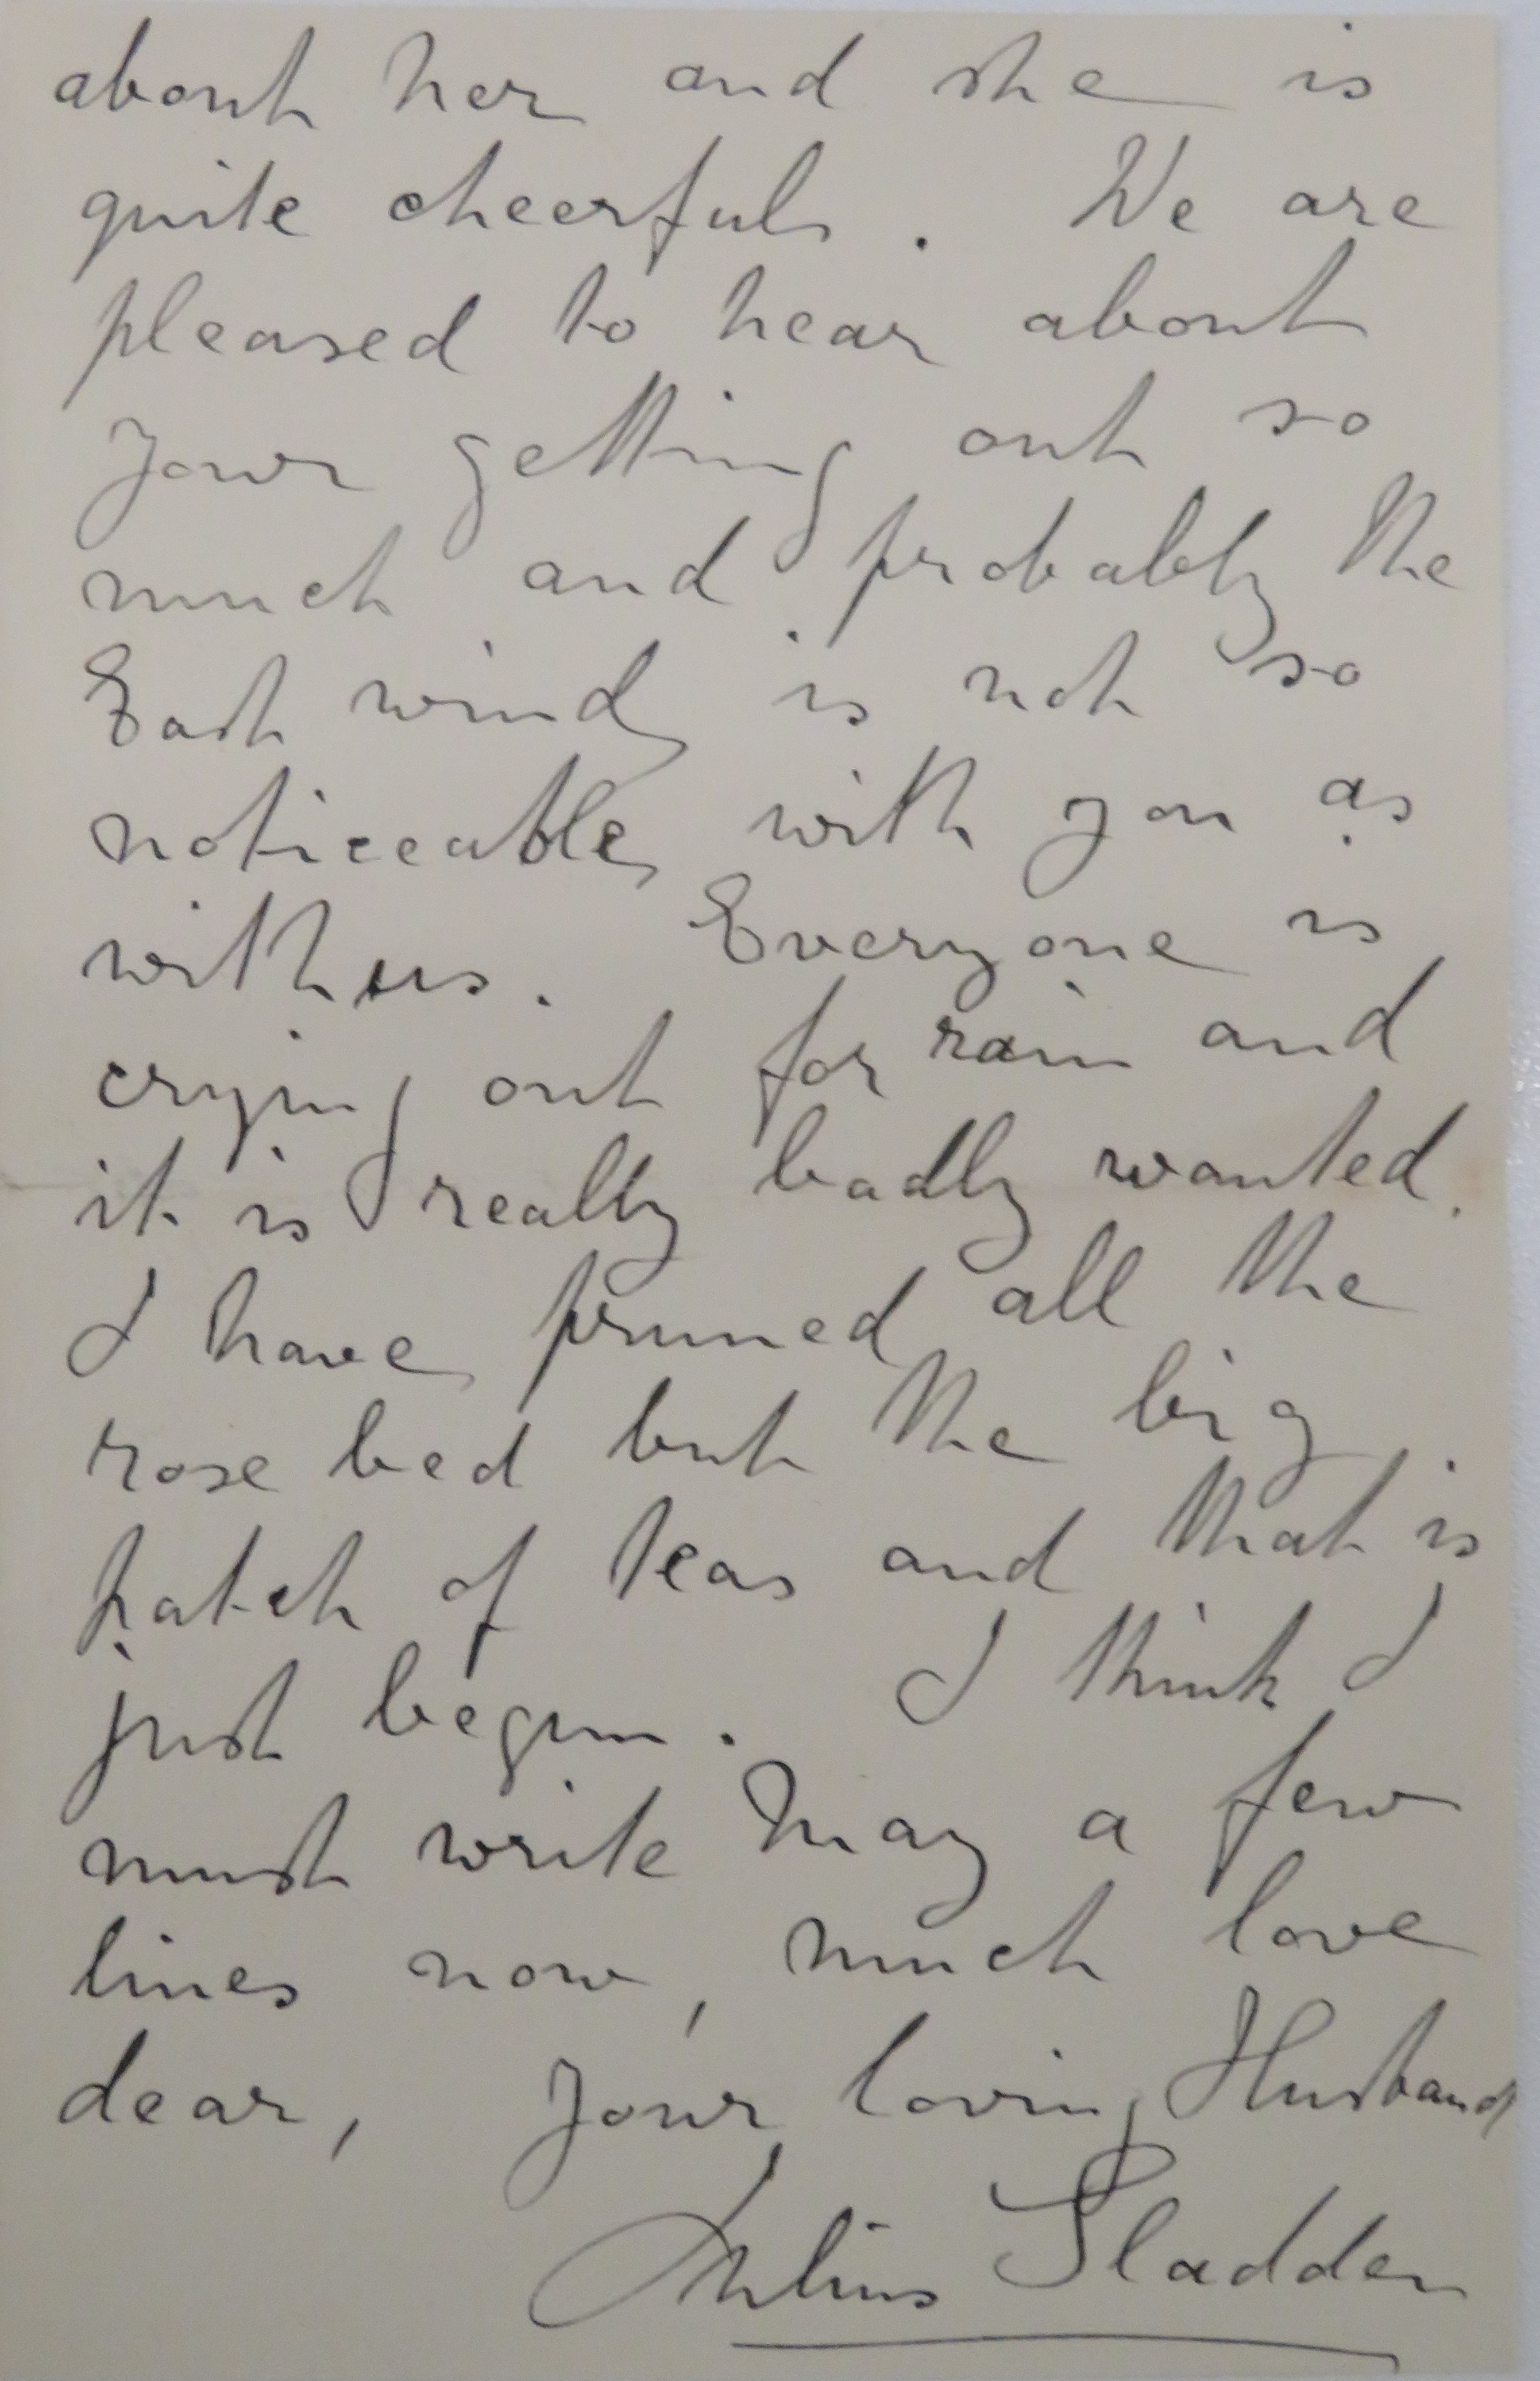 about her and she is
quite cheerful. We are
pleased to hear about
your getting out so
much and probably the
East wind is not so
noticeable with you as
with us. Everyone is
crying out for rain and
it is really badly wanted.
I have pruned all the
rose bed but the big
patch of teas and that is
just begun. I think I
must write May a few
lines now, much love
dear, your loving Husband
Julius Sladden